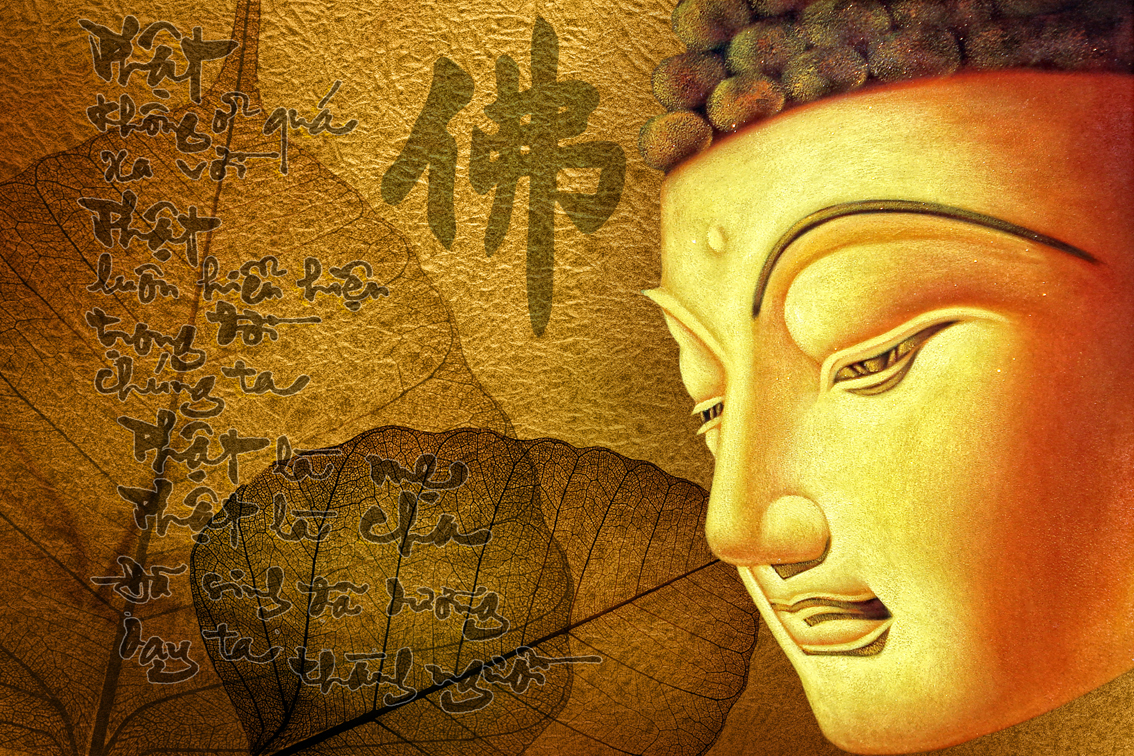 Phật
không ở quá
xa vời
Phật
luôn hiển hiện
trong đời
chúng ta
Phật là mẹ
Phật là cha
Đã sinh đã dưỡng
dạy ta thành người
佛